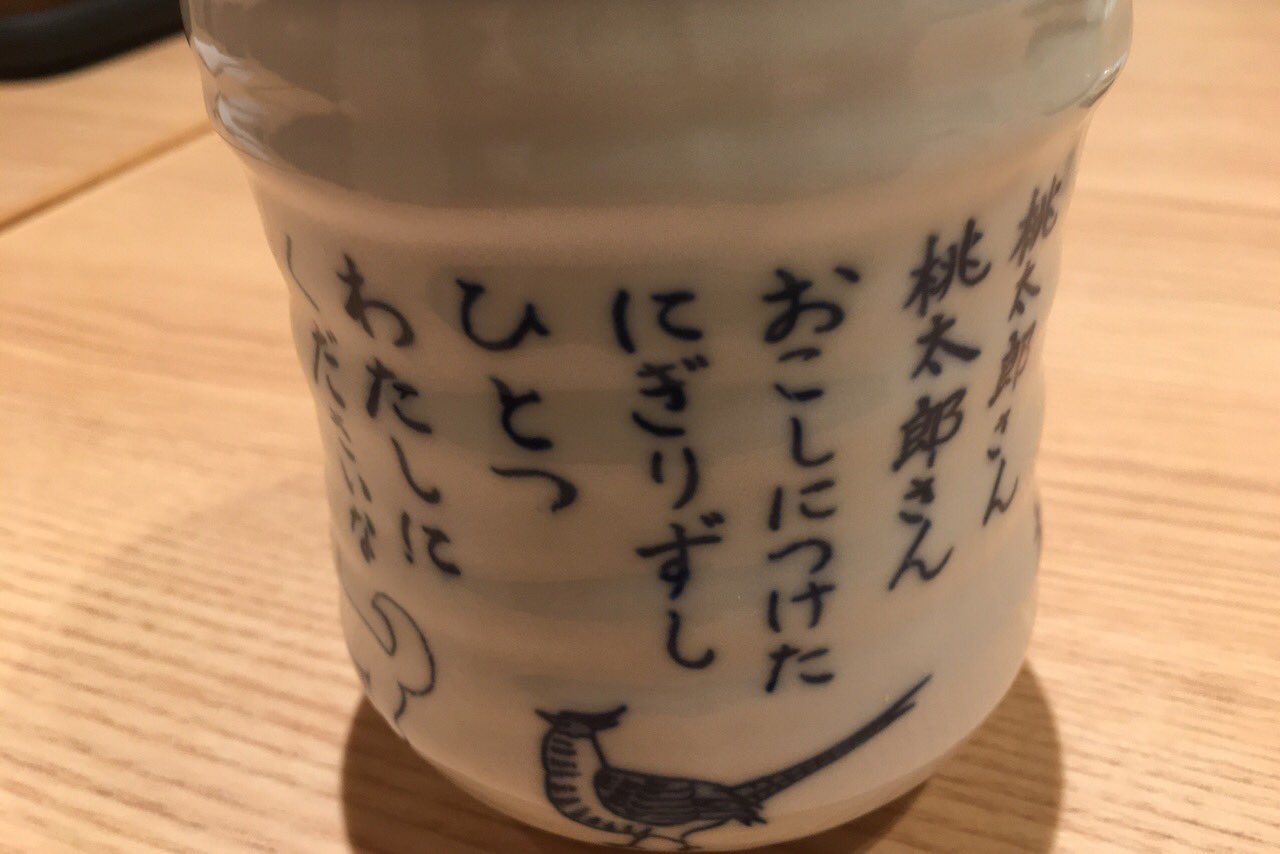 桃太郎さん
桃太郎さん
おこしにつけた
にぎりずし
ひとつ
わたしに
くださいな